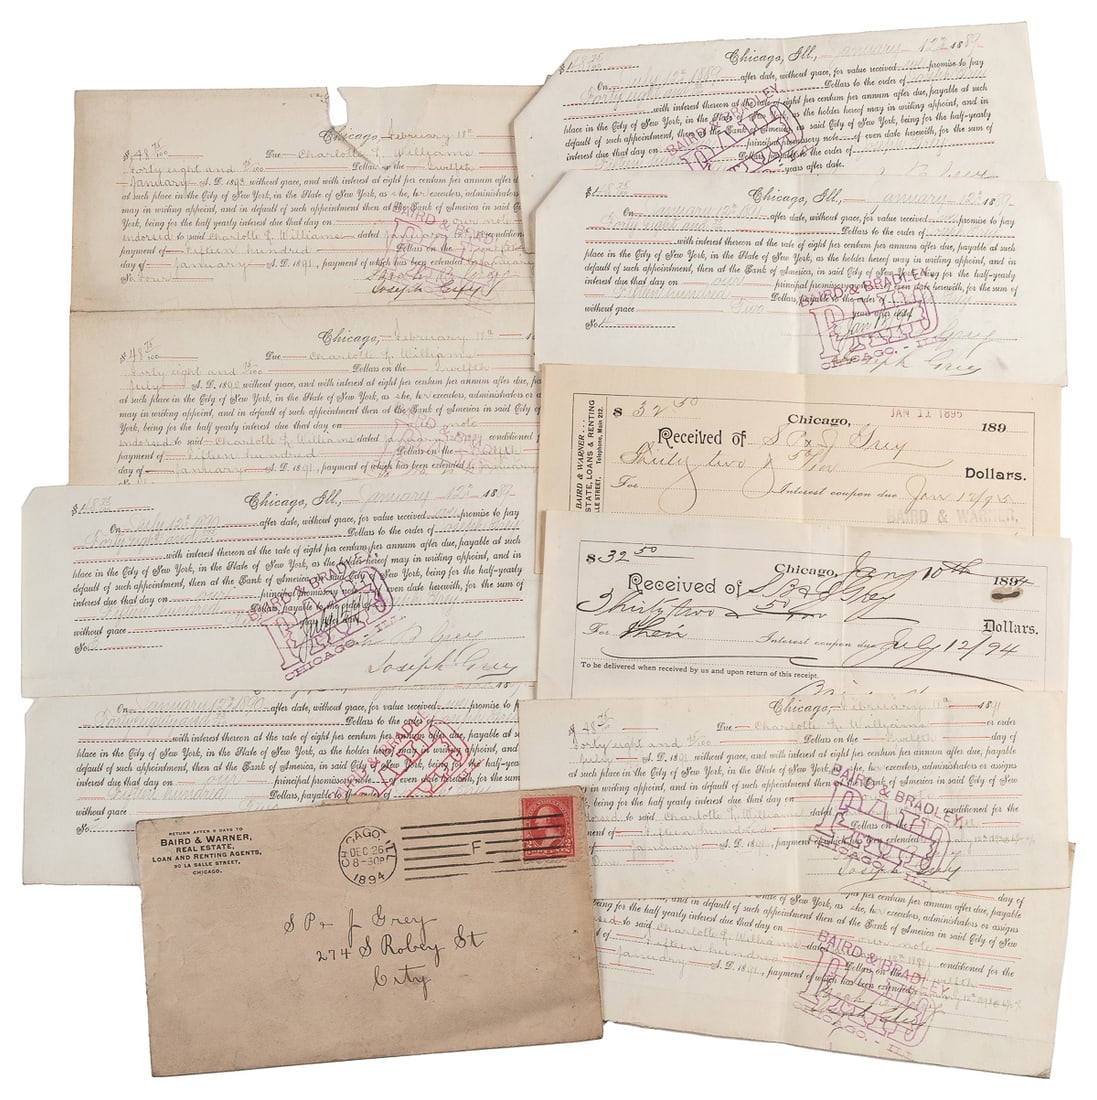 Chicago, February 18th
$ 48 75/100 Due Charlotte L. Williams
Forty eight and 75/100 Dollars on the twelfth
January A. D. 1893, without grace, and with interest at eight per centum per annum after
at such place in the City of New York, in the State of New York, as she, her executors, administrators
may in writing appoint, and in default of such appointment then at the Bank of America in said City of New
York, being for the half yearly interest due that day on our note
endorsed to said Charlotte L. Williams dated January conditioned
payment of fifteen hundred Dollars on the
day of January A. D. 1891, payment of which has been extended to January
No. four
Joseph Grey
Chicago, February 18th
$ 48 75/100 Due Charlotte L. Williams
Forty eight and 75/100 Dollars on the twelfth
July A. D. 1892 without grace, and with interest at eight per centum per annum after due,
at such place in the City of New York, in the State of New York, as she, her executors, administrators
may in writing appoint, and in default of such appointment then at the Bank of America in said City of New
York, being for the half yearly interest due that day on note
endorsed to said Charlotte L. Williams dated January conditioned
payment of fifteen hundred Dollars on the
day of January A. D. 1891, payment of which has been extended to January
$ 48 75 Chicago, Ill., January 12th 1889
On July 12th 1890 after date, without grace, for value received we promise to pay
Forty eight and 75 Dollars to the order of Joseph Grey
with interest thereon at the rate of eight per centum per annum after due, payable at such
place in the City of New York, in the State of New York, as the holder hereof may in writing appoint, and in
default of such appointment, then at the Bank of America, in said City of New York, being for the half-yearly
interest due that day on our principal promissory note for the sum of
fifteen hundred Dollars, payable to the order of
without grace
No.
BAIRD & BRADLEY
PAID
CHICAGO.- ILL.
B Grey
Joseph Grey
January 12th 1890
Forty eight and 75 Dollars to the order
with interest thereon at the rate of eight per centum per annum after due,
place in the City of New York, in the State of New York, as the holder hereof may in writing appoint, and in
default of such appointment, then at the Bank of America, in said City of New York, being for the half-yearly
interest due that day on our principal promissory note of even date herewith, for the sum
fifteen hundred Dollars, payable to the order of
without grace
No.
BAIRD & BRADLEY
PAID
RETURN AFTER 5 DAYS TO
BAIRD & WARNER,
REAL ESTATE,
LOAN AND RENTING AGENTS,
90 LA SALLE STREET,
CHICAGO.
CHICAGO ILL.
DEC 26
8-30P
1894
F
S P & J Grey
274 S Robey St
City
$ 48 75/100 Chicago, Ill., January 12th 1889
On July 12th 1889 after date, without grace, for value received we promise to pay
Forty eight and 75 Dollars to the order of Joseph Grey
with interest thereon at the rate of eight per centum per annum after due, payable at such
place in the City of New York, in the State of New York, as the holder hereof may in writing appoint, and in
default of such appointment, then at the Bank of America, in said City of New York, being for the half-yearly
interest due that day on of even date herewith, for the sum of
Dollars payable to the order of Joseph Grey
years after date.
BAIRD & BRADLEY
PAID
$ 48 75 Chicago, Ill., January 12th 1889
On January 12th 1891 after date, without grace, for value received we promise to pay
Forty eight and Dollars to the order of Joseph Grey
with interest thereon at the rate of eight per centum per annum after due, payable at such
place in the City of New York, in the State of New York, as the holder hereof may in writing appoint, and in
default of such appointment, then at the Bank of America, in said City of New York, being for the half-yearly
interest due that day on our principal promissory note of even date herewith, for the sum of
fifteen hundred Dollars, payable to the order of
without grace Two years after date
No. 4
BAIRD & BRADLEY
PAID
CHICAGO.- ILL.
Joseph Grey
BAIRD & WARNER
ESTATE, LOANS & RENTING
LE STREET, Telephone, Main 212.
$ 32 50 Chicago, JAN 11 1895 189
Received of S P & J Grey
Thirty two & 50/100 Dollars.
For Interest coupon due Jan 12/95
BAIRD & WARNER,
$ 32 50 Chicago, Jany 10th 1894
Received of S P & J Grey
Thirty two & 50/100 Dollars.
For their Interest coupon due July 12/94
To be delivered when received by us and upon return of this receipt.
Chicago, February 18th 1891
$ 48 75/100 Due Charlotte L. Williams or order
Forty eight and 75/100 Dollars on the twelfth day of
July A. D. 1891 without grace, and with interest at eight per centum per annum after due, payable
at such place in the City of New York, in the State of New York, as she, her executors, administrators or assigns
may in writing appoint, and in default of such appointment then at the Bank of America in said City of New
York, being for the half yearly interest due that day on
endorsed to said Charlotte L. Williams dated conditioned for the
payment of fifteen hundred Dollars on the twelfth
day of January A. D. 1891, payment of which has been extended to January 12th
No. One
BAIRD & BRADLEY
PAID
CHICAGO.- ILL.
Joseph Grey
day of
at such place in the City of New York, in the State of New York, as she, her executors, administrators or assigns
may in writing appoint, and in default of such appointment then at the Bank of America in said City of New
York, being for the half yearly interest due that day on our note
endorsed to said Charlotte L. Williams dated January 12th 1889, conditioned for the
payment of fifteen hundred Dollars on the twelfth
day of January A. D. 1891, payment of which has been extended to January 12th
BAIRD & BRADLEY
PAID
CHICAGO.- ILL.
Joseph Grey